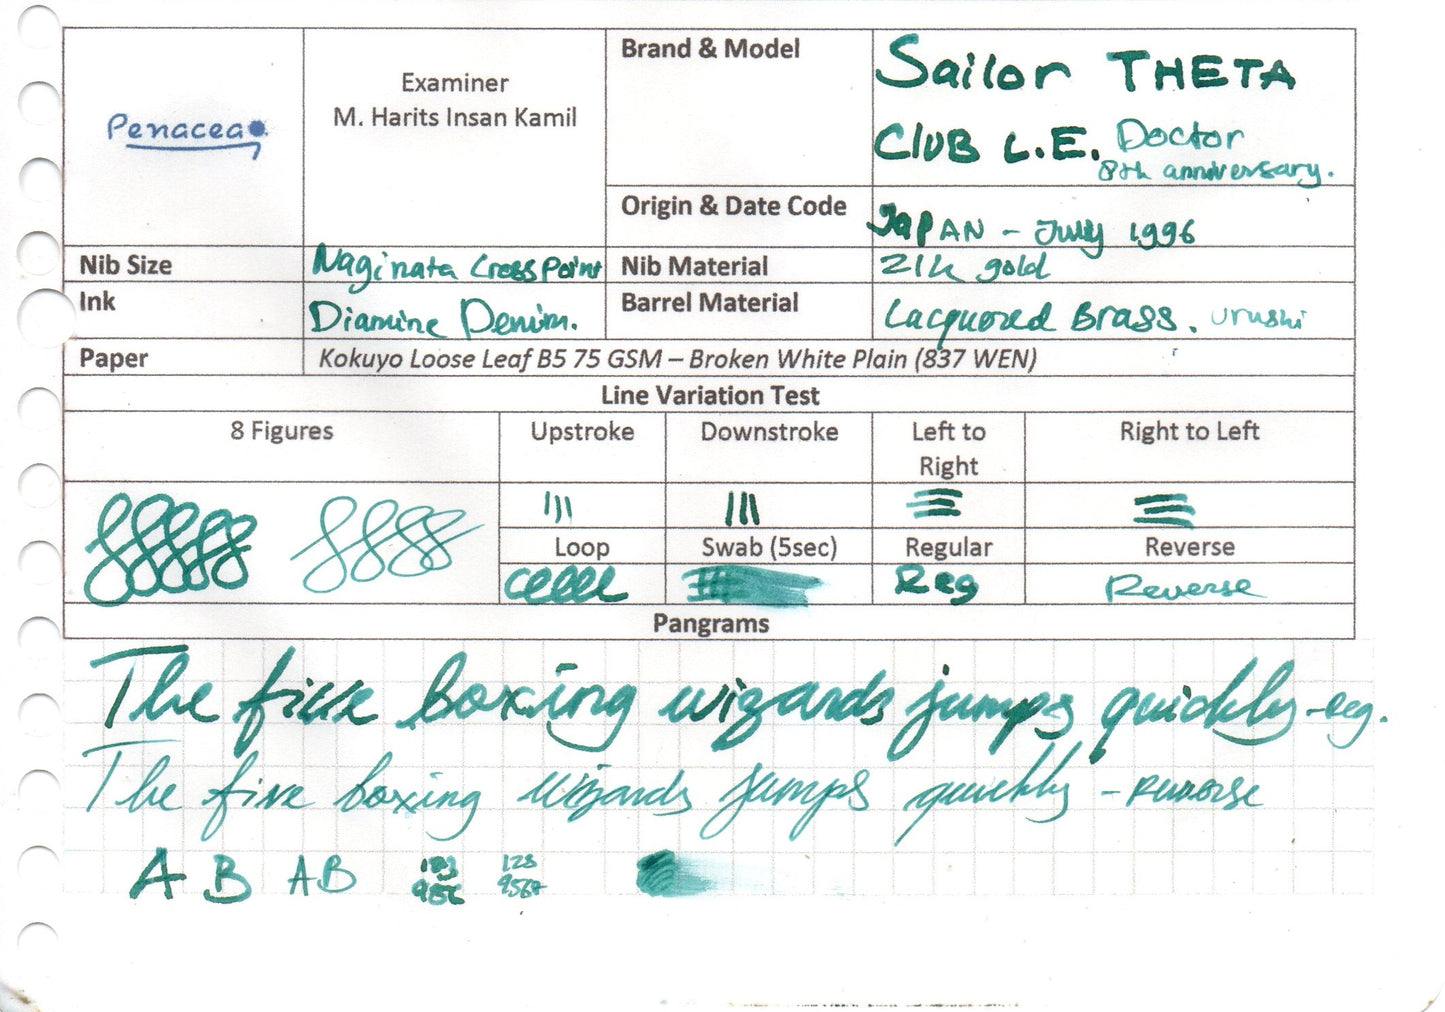 Penacea
Examiner
M. Harits Insan Kamil
Brand & Model
Sailor THETA
CLUB L.E. Doctor
8th anniversary.
Origin & Date Code
JAPAN - July 1996
Nib Size
Naginata Cross Point
Nib Material
21k gold
Ink
Diamine Denim.
Barrel Material
Lacquered Brass. urushi
Paper
Kokuyo Loose Leaf B5 75 GSM – Broken White Plain (837 WEN)
Line Variation Test
8 Figures
Upstroke
Downstroke
Left to
Right
Right to Left
Loop
Swab (5sec)
Regular
Reverse
Reg
Reverse
Pangrams
The five boxing wizards jumps quickly - reg.
The five boxing wizards jumps quickly - reverse
A B AB 123 123
4567